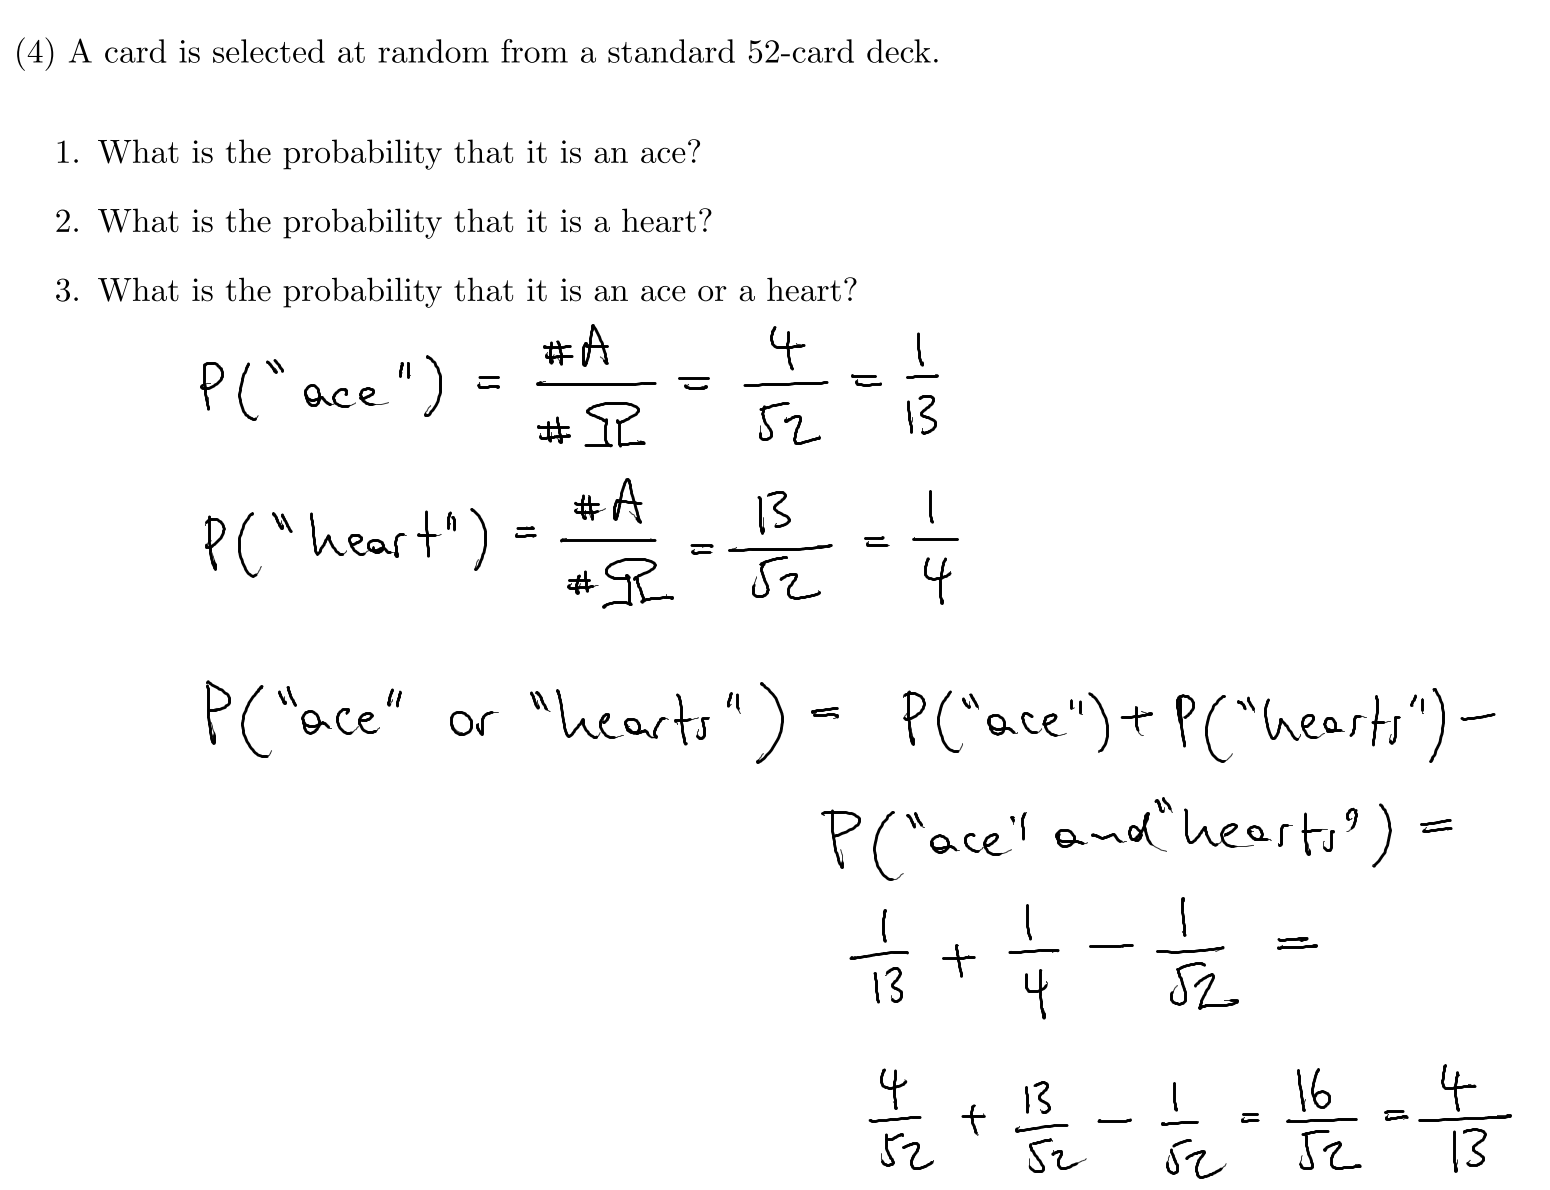 (4) A card is selected at random from a standard 52-card deck.
1. What is the probability that it is an ace?
2. What is the probability that it is a heart?
3. What is the probability that it is an ace or a heart?
P("ace") = #A / #Ω = 4/52 = 1/13
P("heart") = #A / #Ω = 13/52 = 1/4
P("ace" or "hearts") = P("ace") + P("hearts") −
P("ace" and "hearts") =
1/13 + 1/4 − 1/52 =
4/52 + 13/52 − 1/52 = 16/52 = 4/13